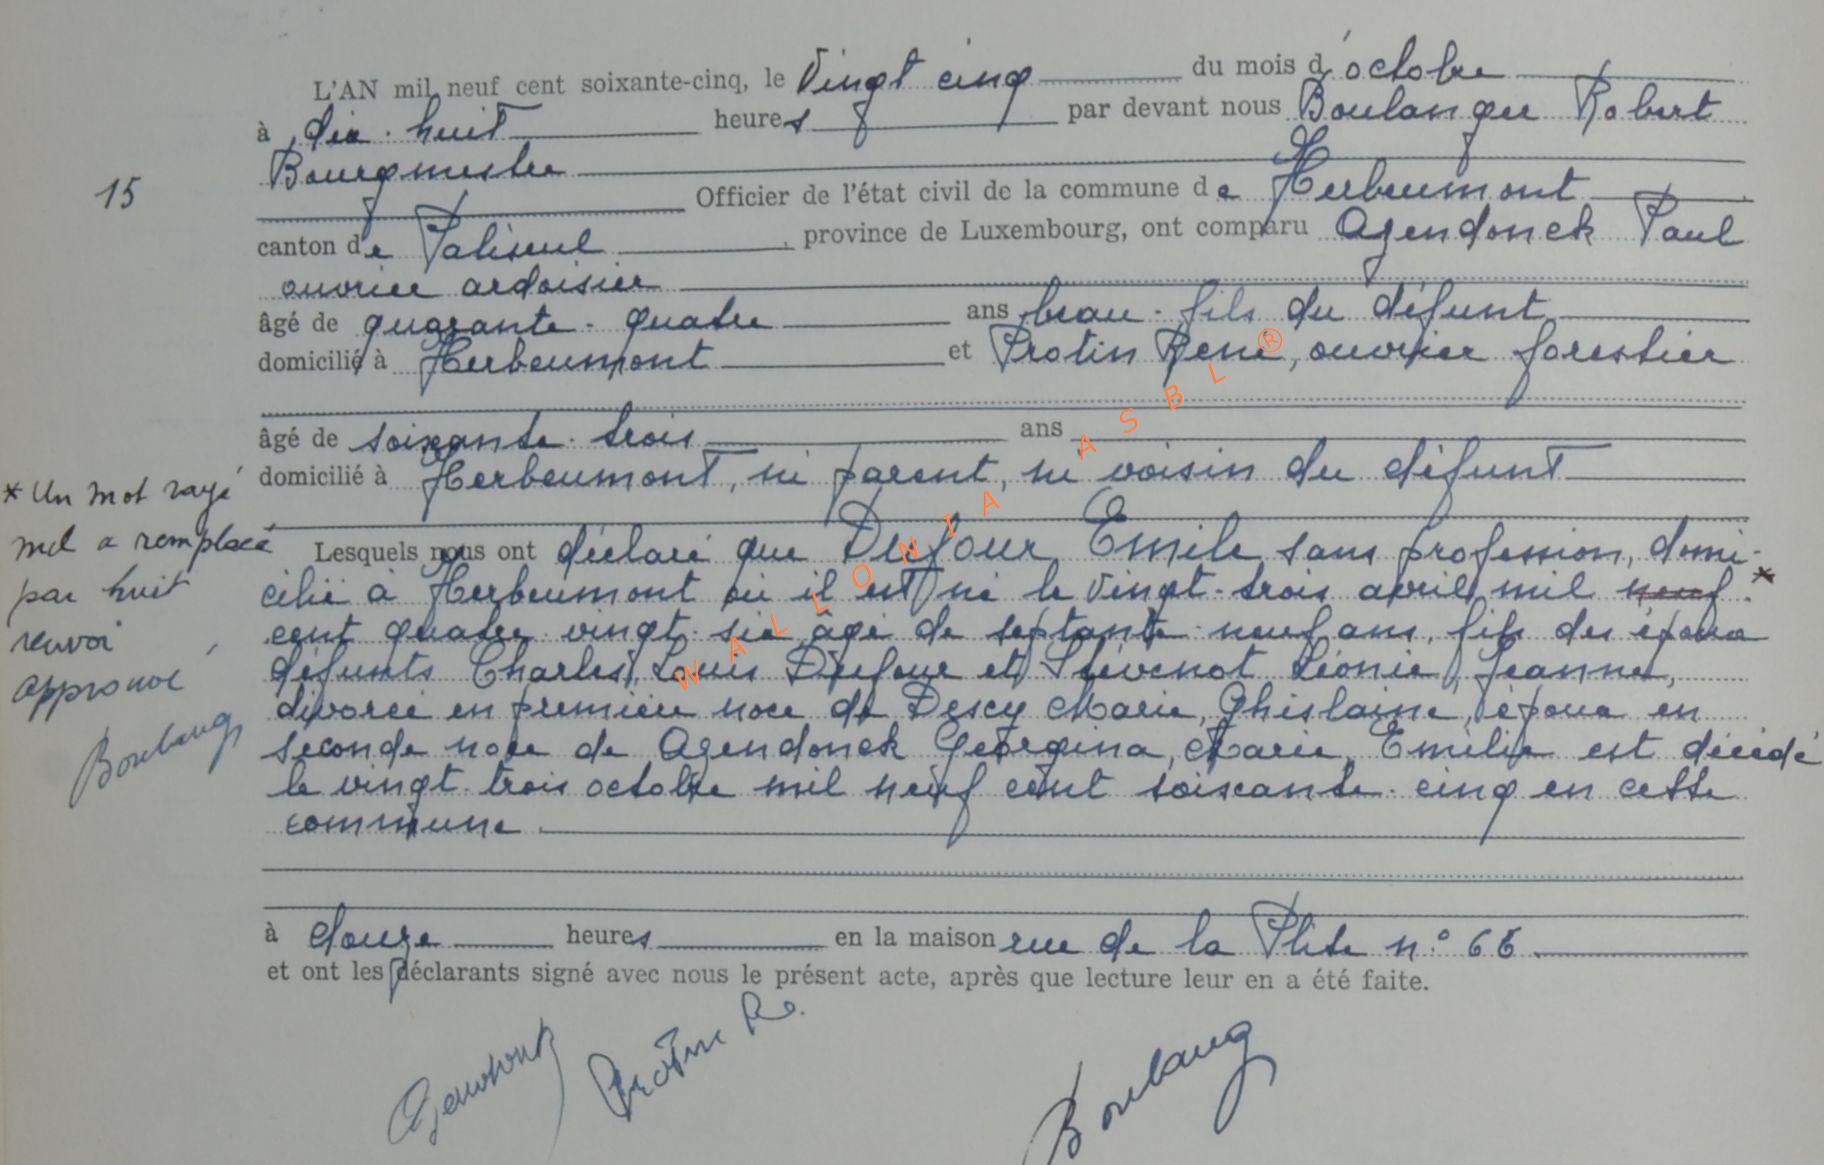 L'AN mil neuf cent soixante-cinq, le Vingt cinq du mois d'octobre
à dix-huit heures par devant nous Boulanger Robert
Bourgmestre
15
Officier de l'état civil de la commune de Herbeumont
canton de Paliseul, province de Luxembourg, ont comparu Agendonck Paul
ouvrier ardoisier
âgé de quarante-quatre ans beau-fils du défunt
domicilié à Herbeumont et Protin René, ouvrier forestier
âgé de soixante-trois ans
domicilié à Herbeumont, ni parent, ni voisin du défunt
Lesquels nous ont déclaré que Dufour Emile sans profession, domi-
cilié à Herbeumont où il est né le Vingt-trois avril mil neuf *
cent quatre vingt-six âgé de septante-neuf ans, fils des époux
défunts Charles, Louis Dufour et Stévenot Léonie, Jeanne,
divorcé en première noce de Descy Marie, Ghislaine, époux en
seconde noce de Agendonck Georgina, Marie, Emilie est décédé
le vingt-trois octobre mil neuf cent soixante-cinq en cette
commune.
* Un mot rayé
nul a remplacé
par huit
renvoi
approuvé
Boulang
à douze heures en la maison rue de la Plite n° 66
et ont les déclarants signé avec nous le présent acte, après que lecture leur en a été faite.
Agendonck Protin Re.
Boulang
WALLONIA ASBL ®